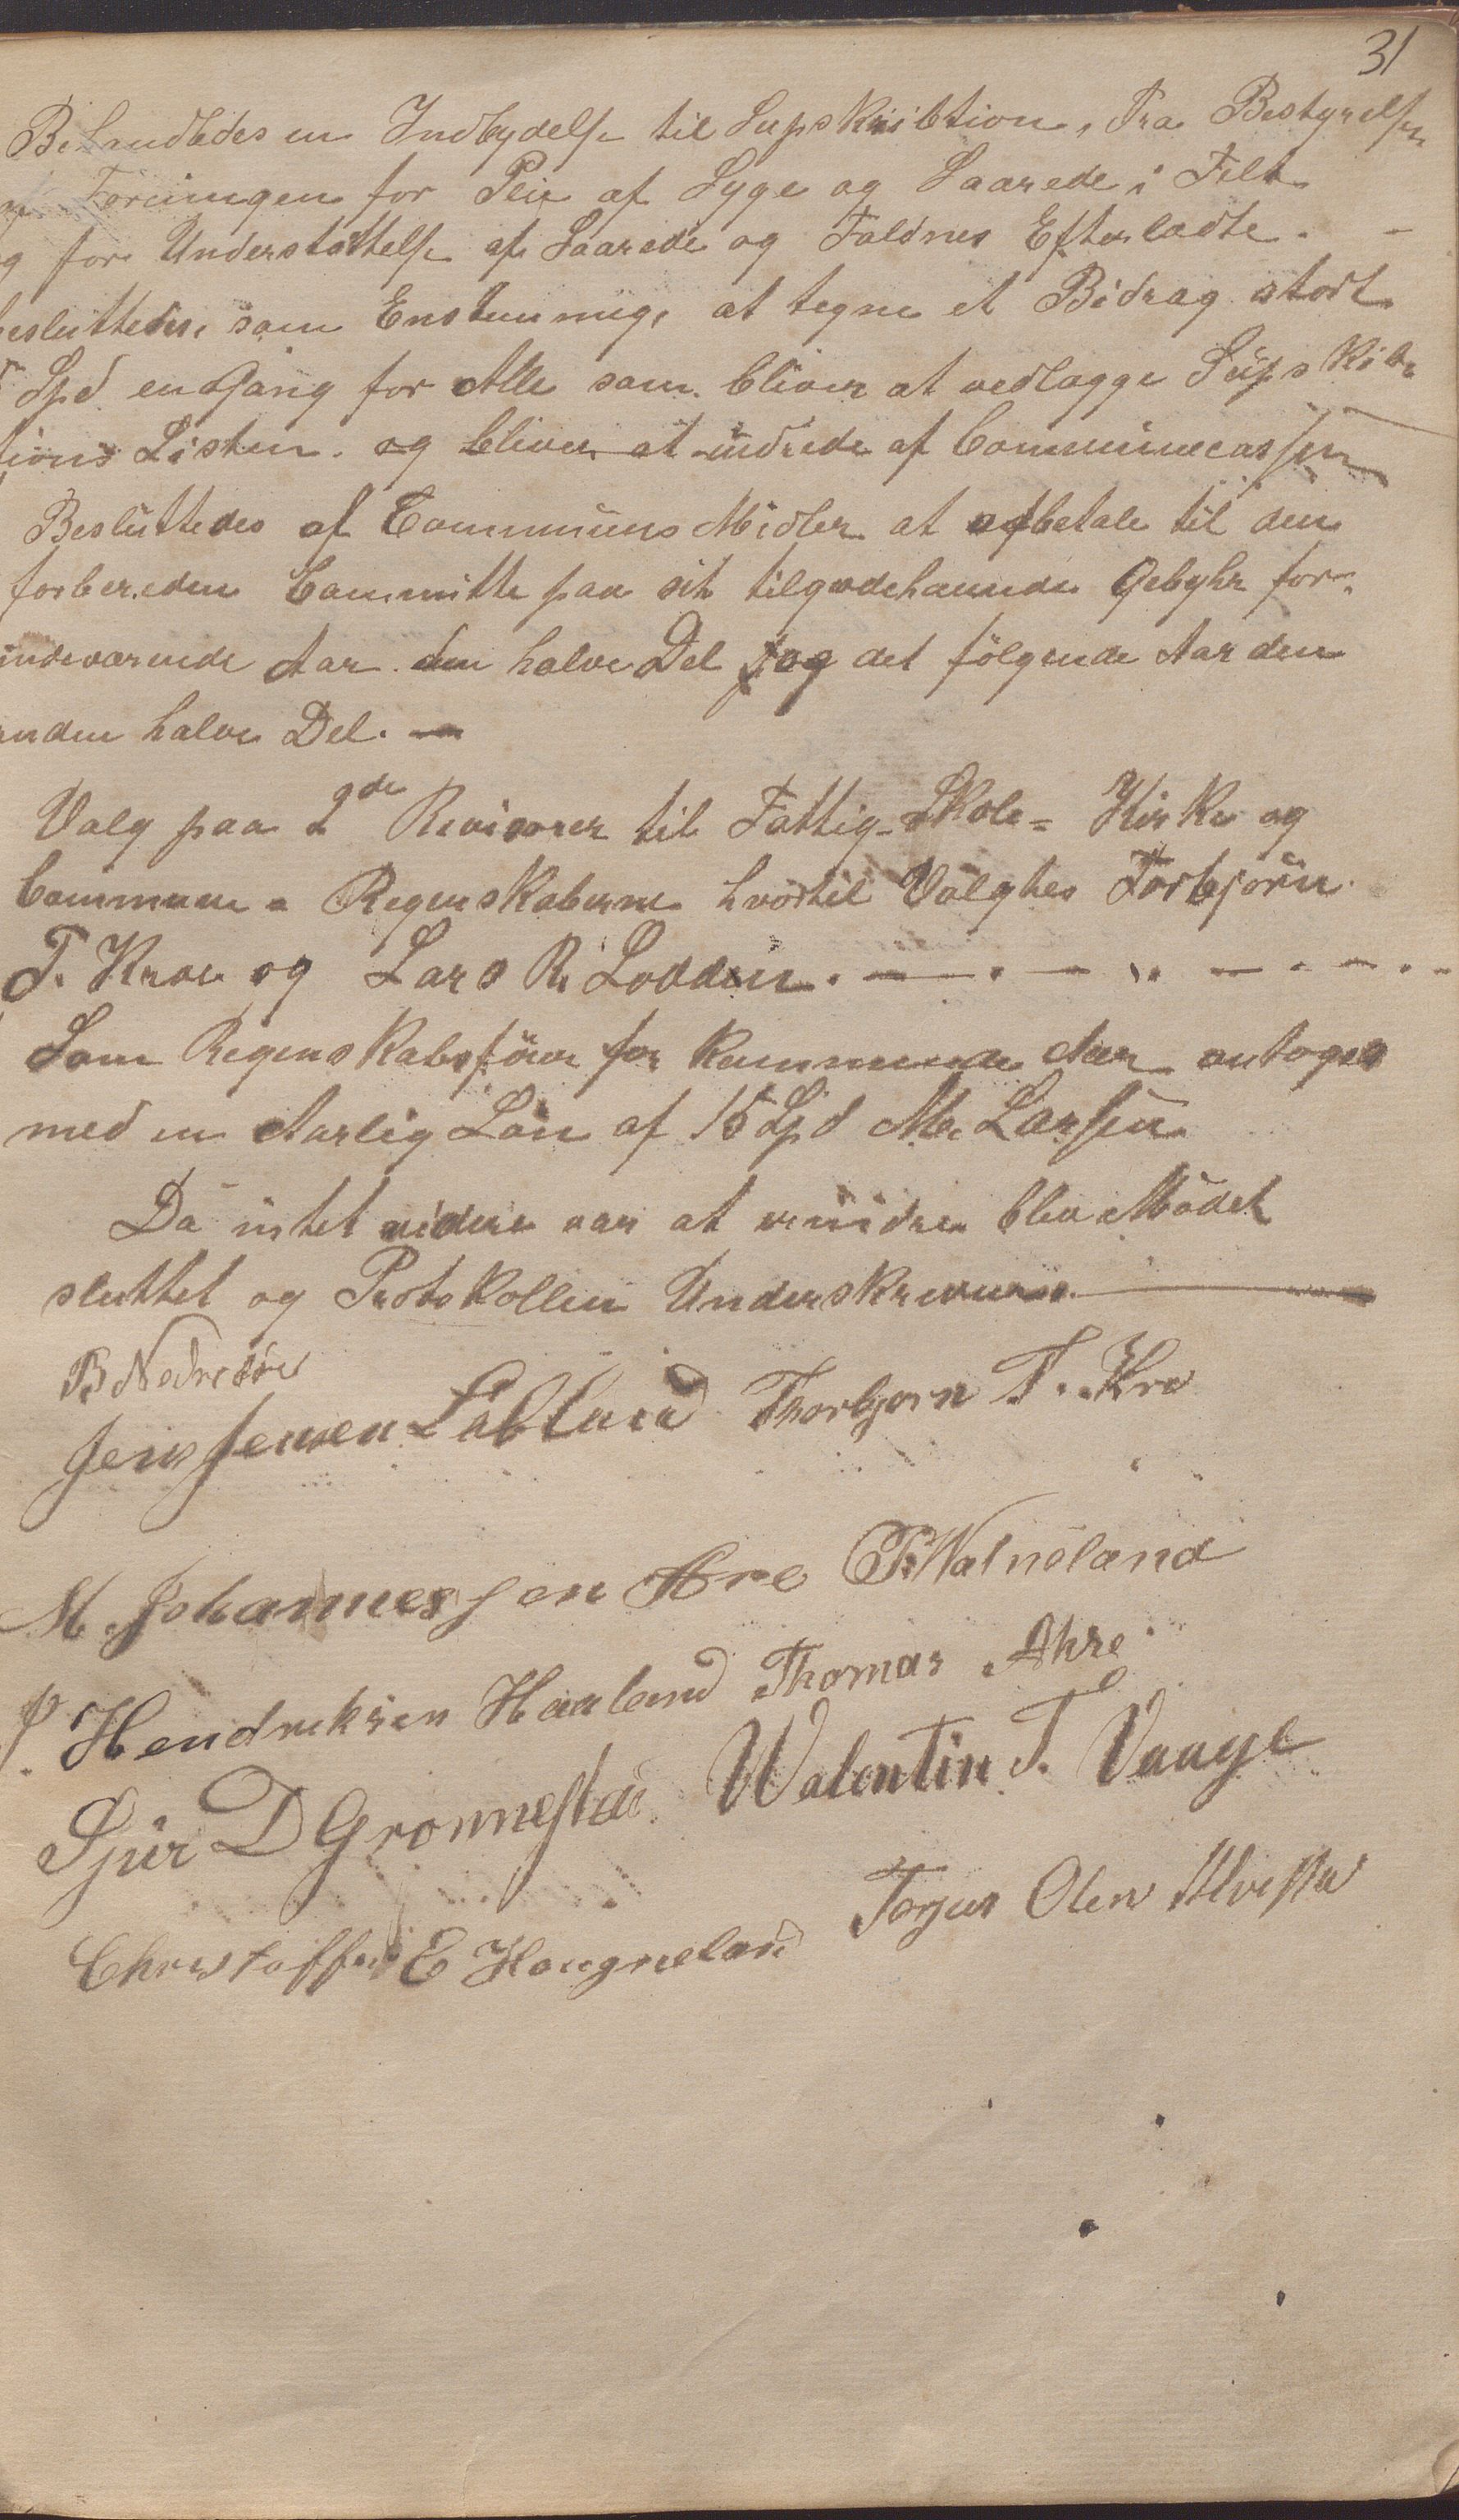 31
Behandledes en Indbydelse til Supskribtion, Fra Bestyrelsen
Foreningen for Pleie af Syge og Saarede i Felt
g for Understøttelse af Saarede og Faldnes Efterladte. -
besluttedes som Enstemmig, at tegne et Bidrag stort
Spd engang for Alle som bliver at vedlægge Supskrib-
tions Listen. og bliver at udrede af Communecassen
Besluttedes af Communs Midler at afbetale til den
forbereden Committe paa sit tilgodehavende Gebyhr for
indeværende Aar den halve Del og det følgende Aar den
anden halve Del. —
Valg paa 2de Revisorer til Fattig- Skole- Kirke og
Commune- Regenskaberne hvortil Valgtes Torbjørn
T. Kroe og Lars R. Lodden. —
Som Regenskabsfører for kommende Aar antoges
med en Aarlig Løn af 15 Spd M. Larsen
Da intet videre var at erindre blev Mødet
sluttet og Protokollen Underskreven. —
B Nedrebø
Jens Jensen Løbland Thorbjørn T. Kro
M. Johannessen Are T. Walneland
P. Hendriksen Haaland Thomas Ahre
Sjur D Gronnestad Walentin T. Vaage
Christoffer E Haugneland Torjus Olen